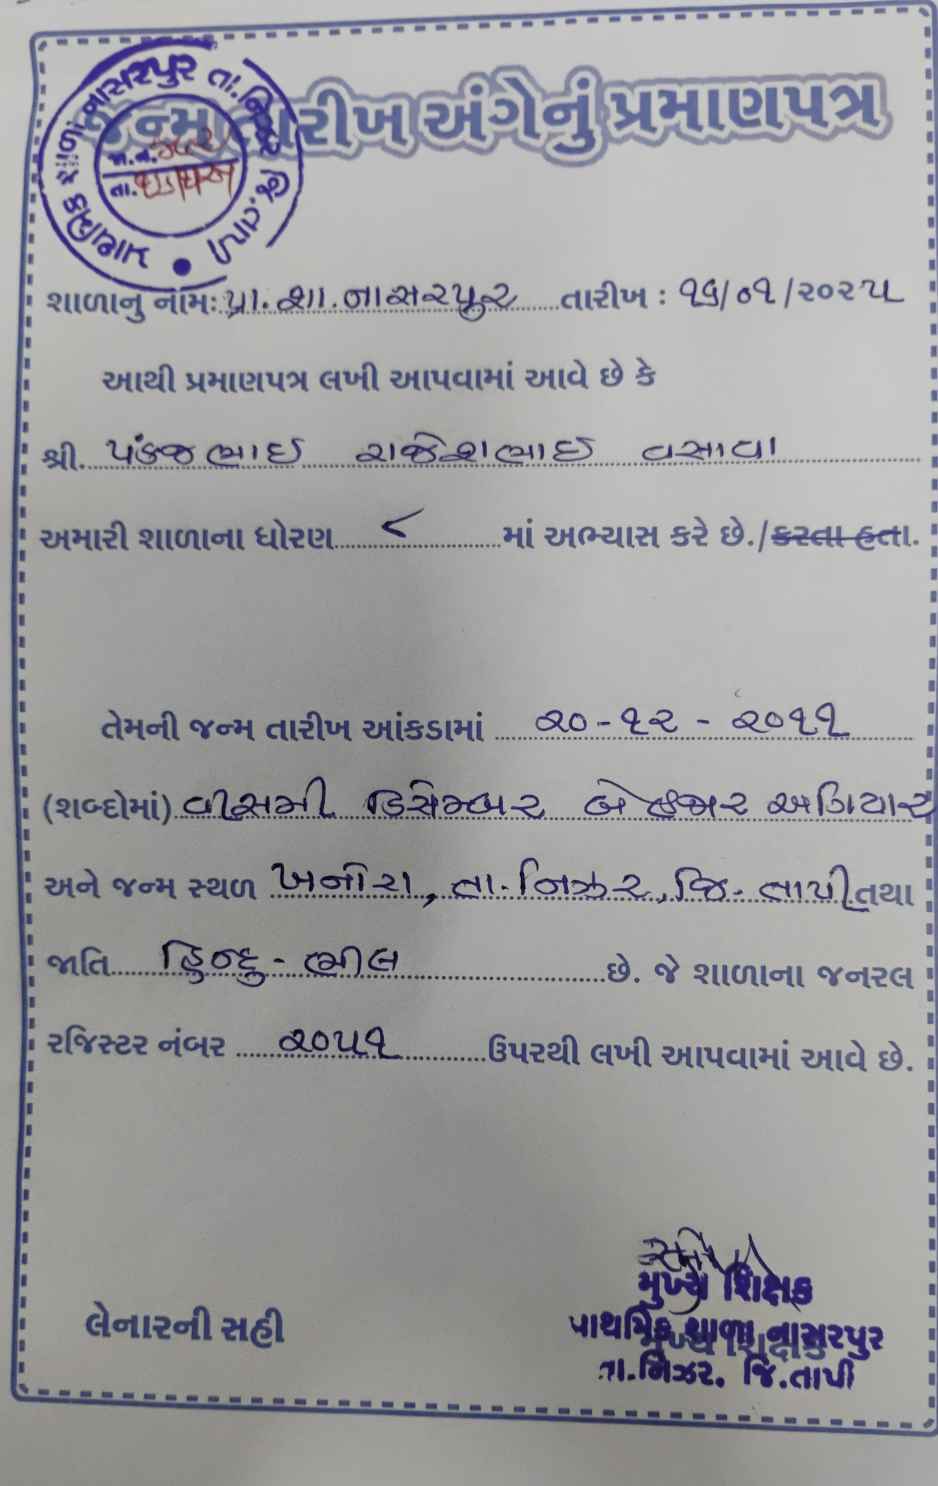 જન્મ તારીખ અંગેનું પ્રમાણપત્ર
પ્રાથમિક શાળા નાસરપુર તા.નિઝર જિ.તાપી
જા.નં.
તા.
શાળાનુ નામ: પ્રા.શા.નાસરપુર તારીખ : ૧૬/૦૧/૨૦૨૫
આથી પ્રમાણપત્ર લખી આપવામાં આવે છે કે
શ્રી. પંકજભાઈ રાજેશભાઈ વસાવા
અમારી શાળાના ધોરણ ૮ માં અભ્યાસ કરે છે./કરતા હતા.
તેમની જન્મ તારીખ આંકડામાં ૨૦-૧૨-૨૦૧૧
(શબ્દોમાં) વીસમી ડિસેમ્બર બે હજાર અગિયાર
અને જન્મ સ્થળ ખનોરા, તા.નિઝર, જિ.તાપી તથા
જાતિ હિન્દુ-ભીલ છે. જે શાળાના જનરલ
રજિસ્ટર નંબર ૨૦૫૧ ઉપરથી લખી આપવામાં આવે છે.
મુખ્ય શિક્ષક
લેનારની સહી પ્રાથમિક શાળા નાસરપુર
મુખ્ય શિક્ષક
તા.નિઝર. જિ.તાપી